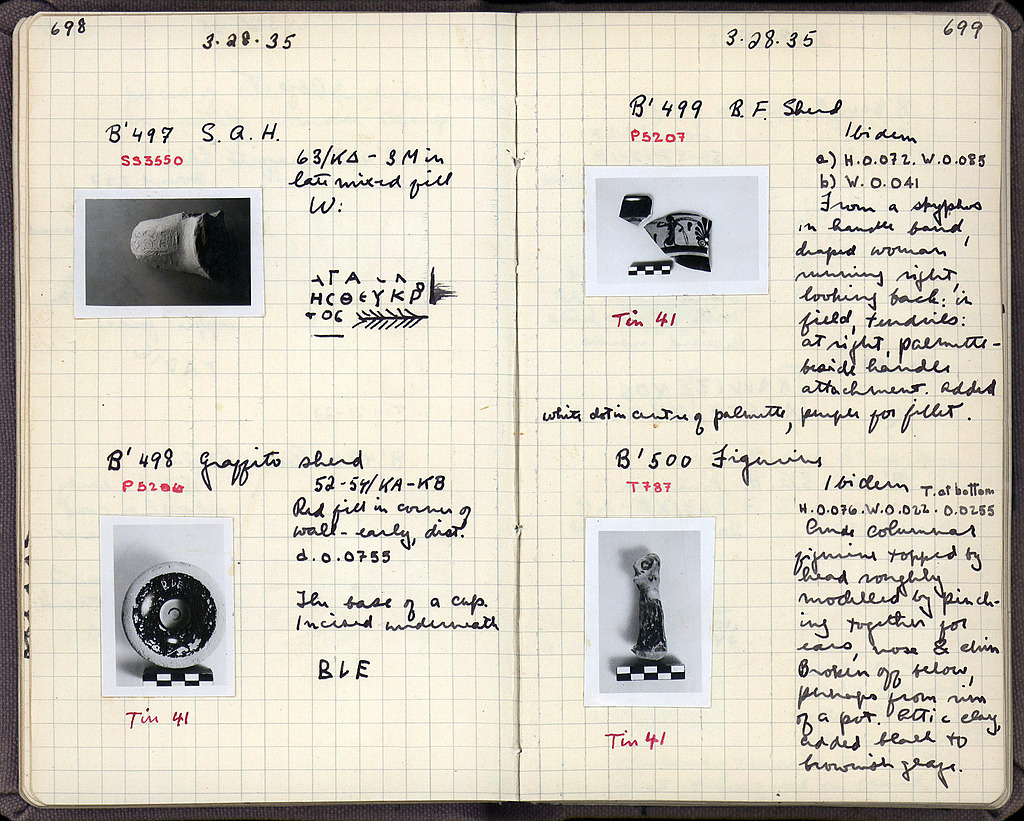 698
3·28·35
B' 497 S. A. H.
SS3550
63/ΚΔ - 3 M in
late mixed fill
W:
ΗϹΘΕΥΚΡ
B' 498 Graffito sherd
P5206
52-54/ΚΑ-ΚΒ
Red fill in corner of
wall - early, dist.
d. 0.0755
The base of a cup.
Incised underneath
Tin 41
699
3·28·35
B' 499 B. F. Sherd
P5207
Ibidem
a) H. 0.072. W. 0.085
b) W. 0.041
From a skyphos
in handle band,
draped woman
running right,
looking back: in
field, tendrils:
at right, palmette-
beside handle
attachment. Added
white dot in centre of palmette, purple for fillet.
Tin 41
B' 500 Figurine
T787
Ibidem T. at bottom
H. 0.076. W. 0.022 · 0.0255
Crude columnar
figurine topped by
head roughly
modelled by pinch-
ing together for
ears, nose & chin
Broken off below,
perhaps from rim
of a pot. Attic clay,
added black to
brownish glaze.
Tin 41